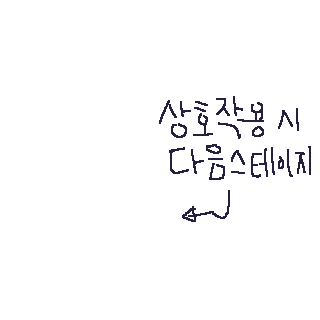 상호작용 시
다음스테이지